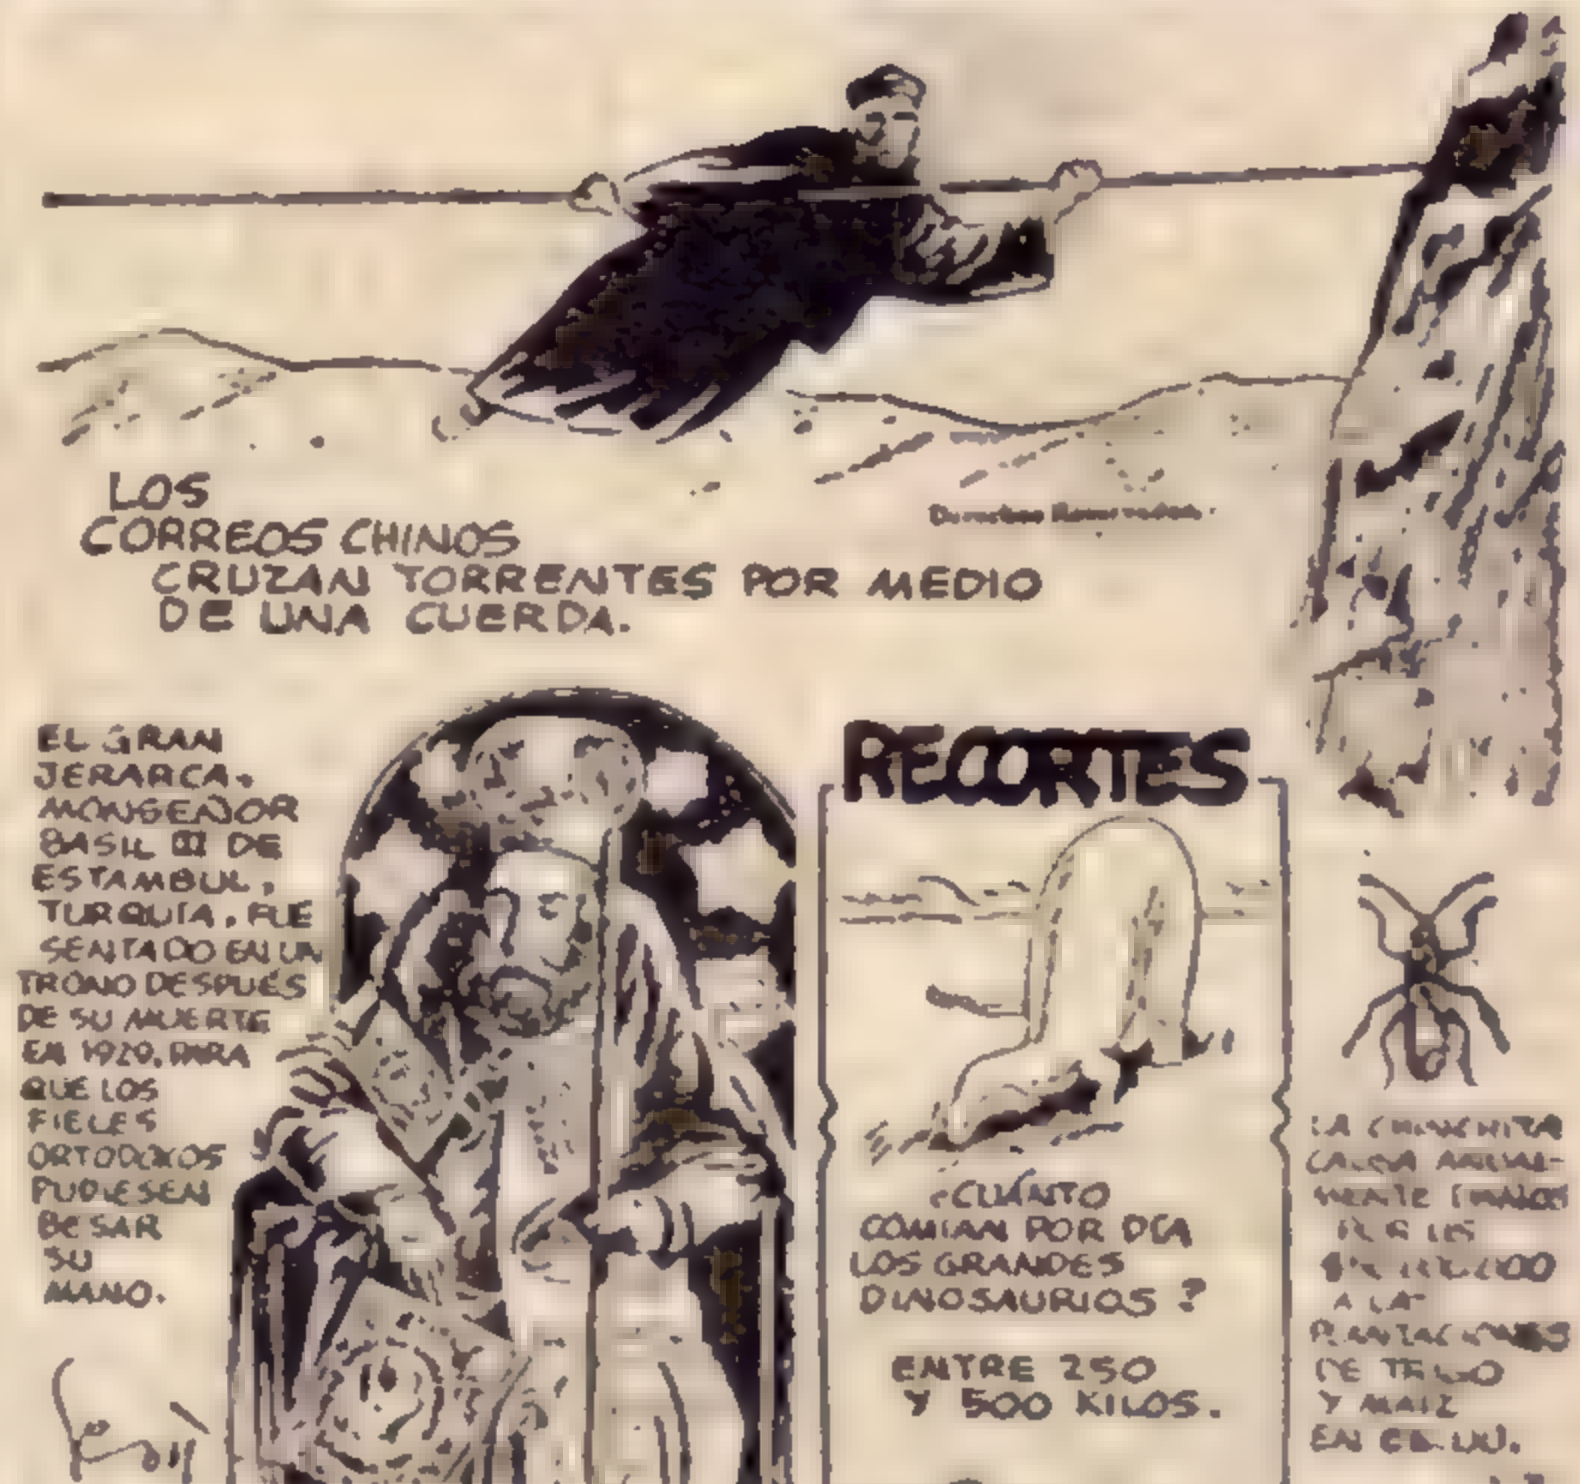 LOS
CORREOS CHINOS
CRUZAN TORRENTES POR MEDIO
DE UNA CUERDA.
Derechos Reservados.
EL GRAN
JERARCA,
MONSEÑOR
BASIL III DE
ESTAMBUL,
TURQUÍA, FUE
SENTADO EN UN
TRONO DESPUÉS
DE SU MUERTE
EN 1929, PARA
QUE LOS
FIELES
ORTODOXOS
PUDIESEN
BESAR
SU
MANO.
RECORTES
¿CUÁNTO
COMIAN POR DÍA
LOS GRANDES
DINOSAURIOS?
ENTRE 250
Y 500 KILOS.
LA
CAUSA ANUAL-
MENTE DAÑOS
POR US
A LAS
PLANTACIONES
DE TRIGO
Y MAIZ
EN EE. UU.